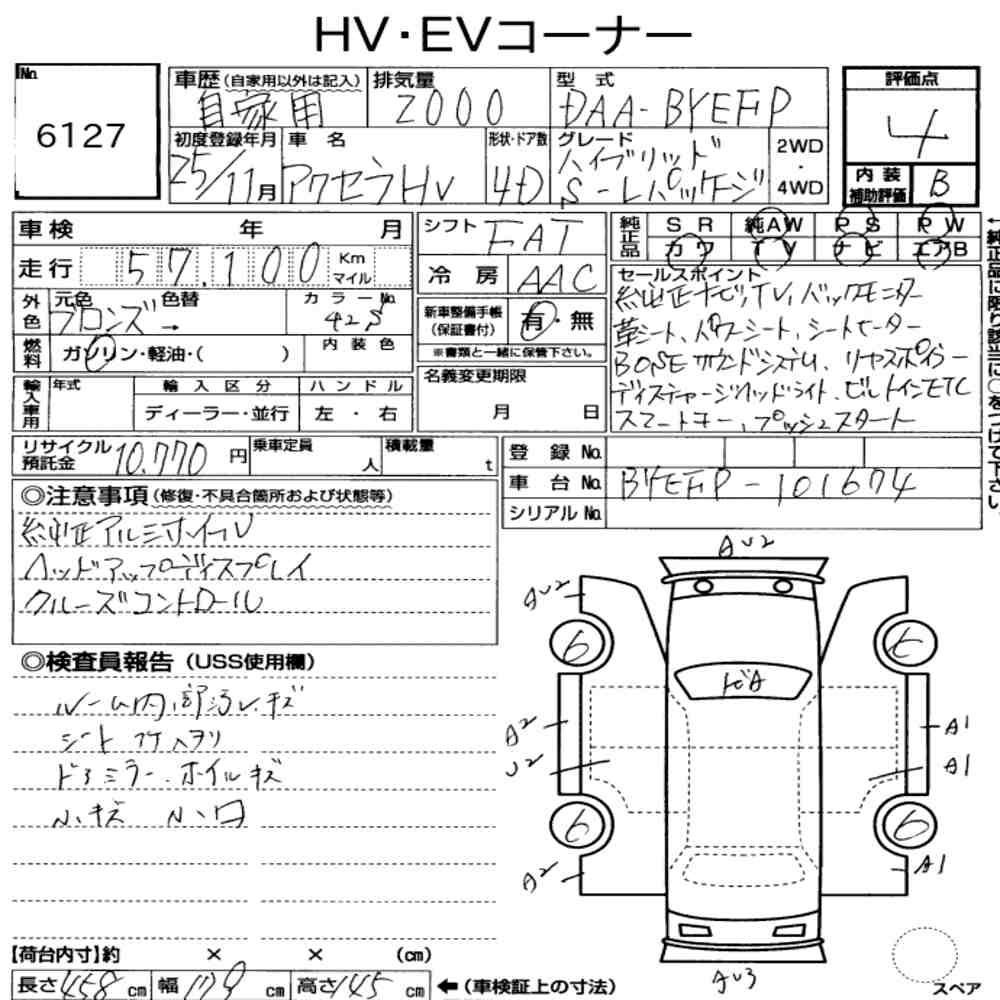 HV・EVコーナー
No. 6127
車歴(自家用以外は記入) 自家用
排気量 2000
型式 DAA-BYEFP
評価点 4
初度登録年月 25/11月
車名 アクセラHV
形状・ドア数 4D
グレード ハイブリッド S-Lパッケージ
2WD・4WD
内装補助評価 B
車検 年 月
走行 57,100 Km マイル
シフト FAT
冷房 AAC
純正品 SR 純AW PS PW
カワ TV ナビ エアB
←純正品に限り該当に○をつけて下さい。
外色 元色 ブロンズ→ 色替
カラーNo. 42S
燃料 ガソリン・軽油・( )
内装色
新車整備手帳(保証書付) 有・無
※書類と一緒に保管下さい。
セールスポイント
純正ナビ、TV、バックモニター
革シート、パワーシート、シートヒーター
BOSEサウンドシステム、リヤスポイラー
ディスチャージヘッドライト、ビルトインETC
スマートキー、プッシュスタート
輸入車用 年式 輸入区分 ハンドル
ディーラー・並行 左・右
名義変更期限
月 日
リサイクル預託金 10,770円
乗車定員 人
積載量 t
登録No.
車台No. BYEFP-101674
シリアルNo.
◎注意事項(修復・不具合箇所および状態等)
純正アルミホイール
ヘッドアップディスプレイ
クルーズコントロール
◎検査員報告(USS使用欄)
ルーム内部汚レ、キズ
シート
ドアミラー、ホイルキズ
小キズ 小凹
AU2
AU2
6
A2
U2
6
A2
トビA
A1
A1
6
A1
AU3
スペア
【荷台内寸】約 × × (cm)
長さ458cm 幅179cm 高さ145cm ←(車検証上の寸法)